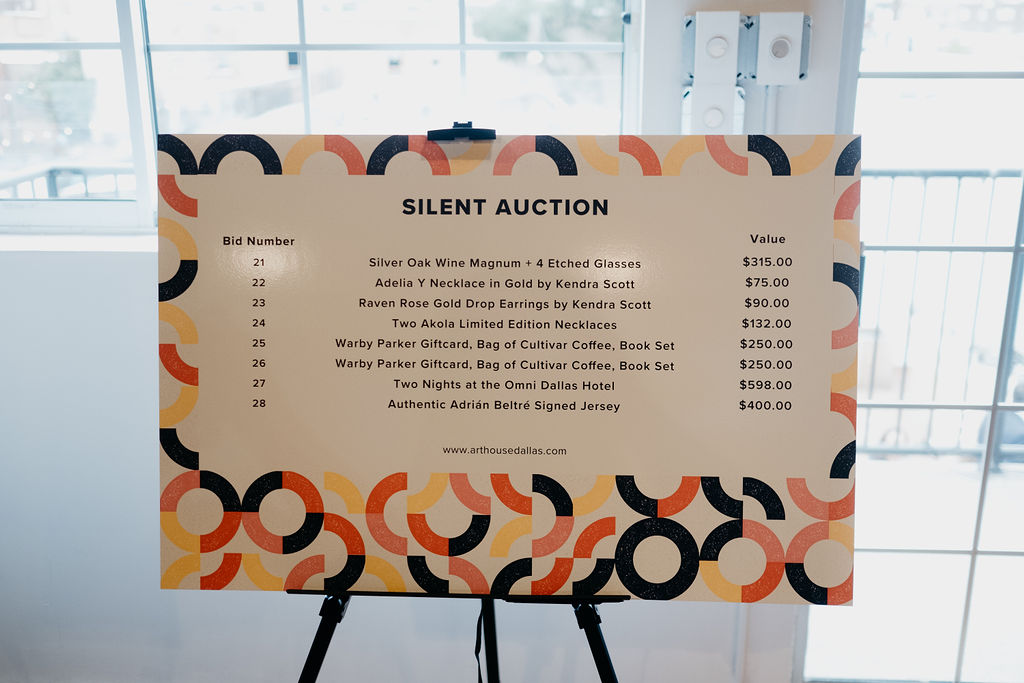 SILENT AUCTION
Bid Number Value
21 Silver Oak Wine Magnum + 4 Etched Glasses $315.00
22 Adelia Y Necklace in Gold by Kendra Scott $75.00
23 Raven Rose Gold Drop Earrings by Kendra Scott $90.00
24 Two Akola Limited Edition Necklaces $132.00
25 Warby Parker Giftcard, Bag of Cultivar Coffee, Book Set $250.00
26 Warby Parker Giftcard, Bag of Cultivar Coffee, Book Set $250.00
27 Two Nights at the Omni Dallas Hotel $598.00
28 Authentic Adrián Beltré Signed Jersey $400.00
www.arthousedallas.com